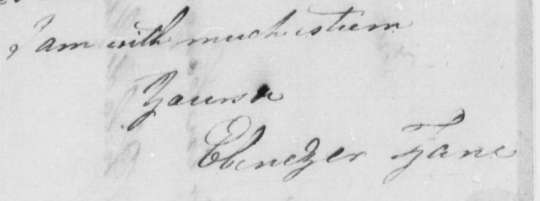 I am with much esteem
Yours &
Ebenezer Zane